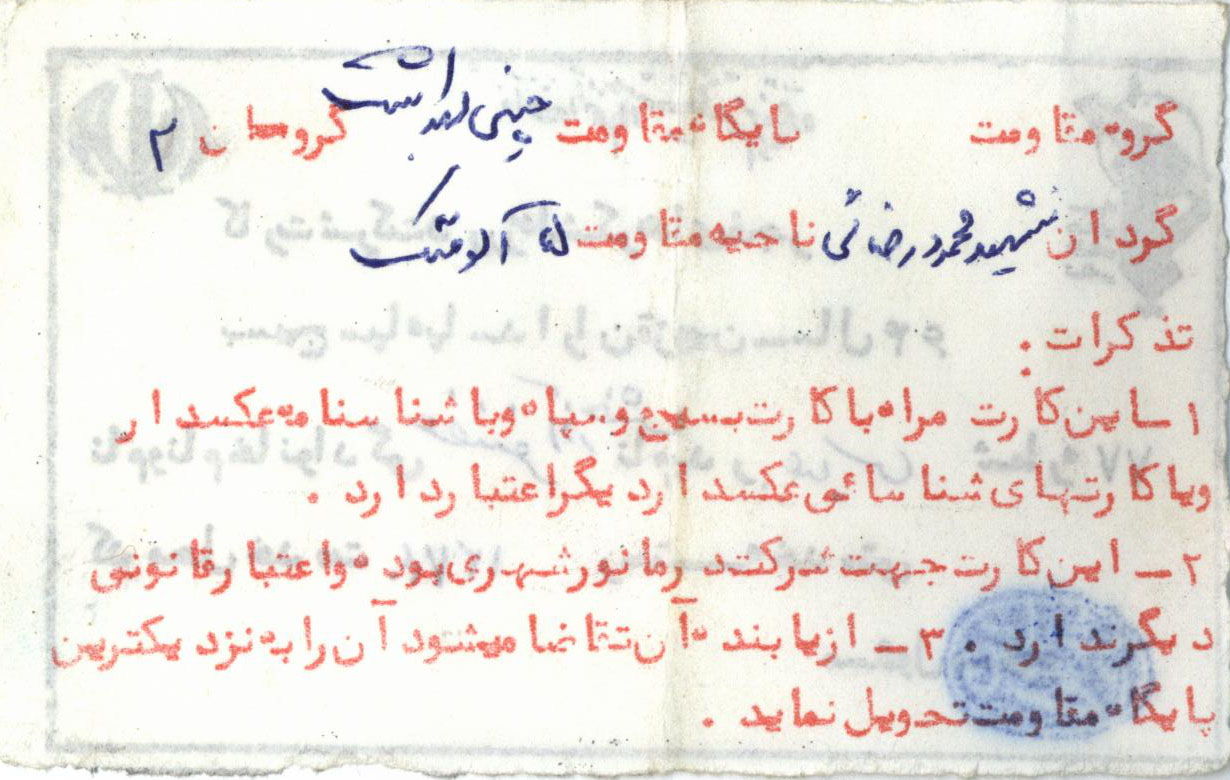 گروه مقاومت پایگاه مقاومت چینی بهداشت گروهان ۲
گردان شهید محمود رضائی ناحیه مقاومت
تذکرات .
۱ــ این کارت همراه با کارت بسیج و سپاه و با شناسنامه عکسدار
ویا کارتهای شناسائی عکسدار دیگر اعتبار دارد .
۲ــ این کارت جهت شرکت در مانور شهری بوده و اعتبار قانونی
دیگر ندارد . ۳ــ از یابنده آن تقاضا میشود آن را به نزدیکترین
پایگاه مقاومت تحویل نماید .